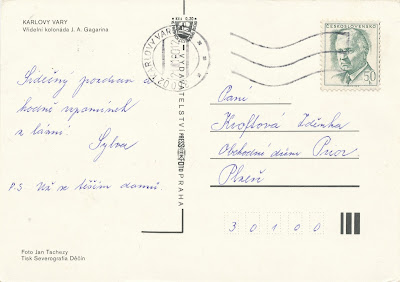 KARLOVY VARY
Vřídelní kolonáda J. A. Gagarina
Srdečný pozdrav a
hodně vzpomínek
a líbání.
Sylva
P.S. Už se těším domů
Foto Jan Tachezy
Tisk Severografia Děčín
VYDAVATELSTVÍ
PRAHA
KARLOVY VARY
ČESKOSLOVENSKO
50
Paní
Kroftová Zdeňka
Obchodní dům Prior
Plzeň
30100